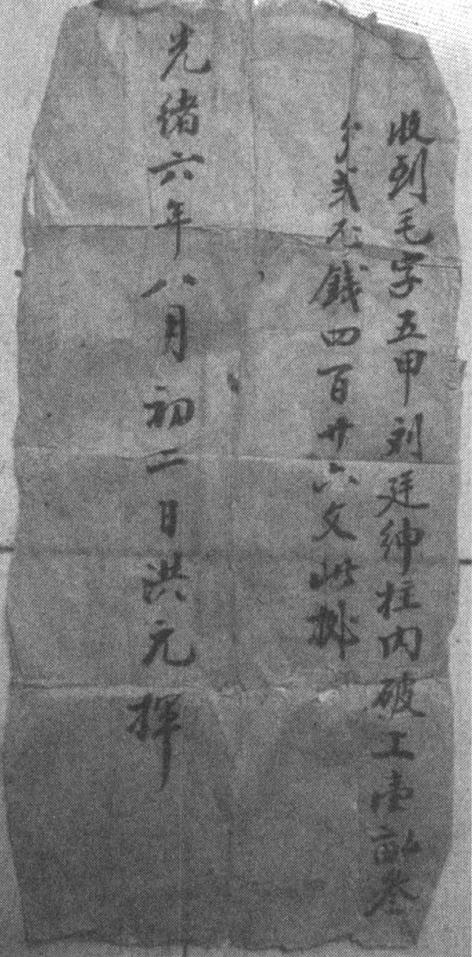 收到毛字五甲刘廷绅柱内破工壹亩叁
分贰厘錢四百廿六文此据
光绪六年八月初二日洪元揮